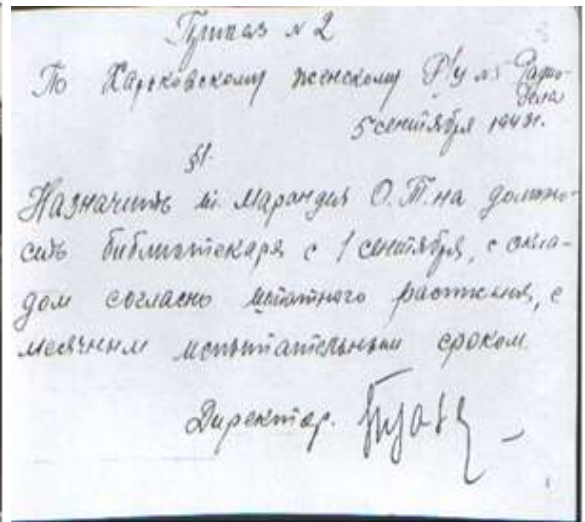 Приказ № 2
По Харьковскому женскому Р/у №5 Радио-
дела
5 сентября 194 г.
§1.
Назначить т. Марандия О.Т. на должно-
сть библиотекаря с 1 сентября, с окла-
дом согласно штатного распи-ния, с
месячным испытательным сроком.
Директор.